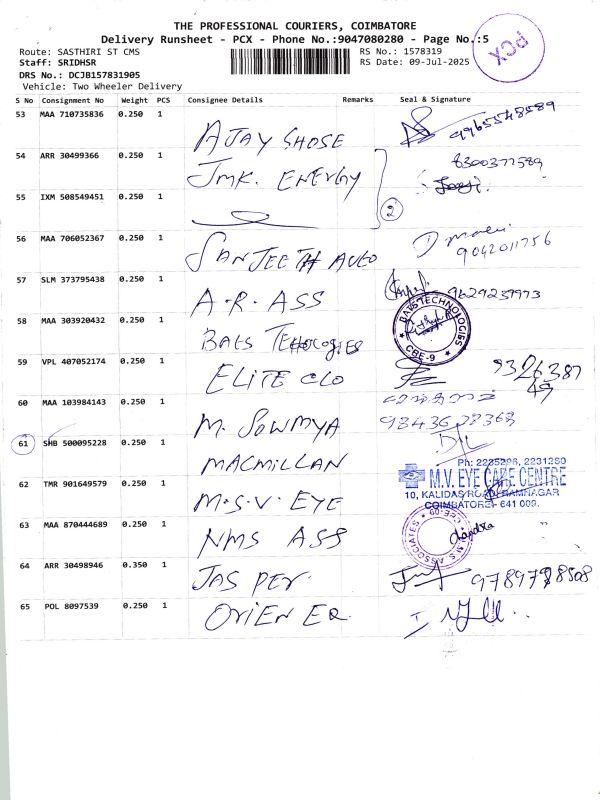 THE PROFESSIONAL COURIERS, COIMBATORE
Delivery Runsheet - PCX - Phone No.:9047080280 - Page No.:5
PCX
Route: SASTHIRI ST CMS
RS No.: 1578319
Staff: SRIDHSR
RS Date: 09-Jul-2025
DRS No.: DCJB157831905
Vehicle: Two Wheeler Delivery
S No Consignment No Weight PCS Consignee Details Remarks Seal & Signature
53 MAA 710735836 0.250 1 AJAY SHOSE 9965548589
54 ARR 30499366 0.250 1 JMK. ENERGY 8300377589
55 IXM 508549451 0.250 1 2
56 MAA 706052367 0.250 1 SANJEETH AUTO 9042011756
57 SLM 373795438 0.250 1 A.R. ASS 9629239973
58 MAA 303920432 0.250 1 BAES TEHOLOGIES BAES TECHNOLOGIES CBE-9
59 VPL 407052174 0.250 1 ELITE CLO 9326387
49
60 MAA 103984143 0.250 1 M. SOWMYA
61 SHB 500095228 0.250 1 MACMILLAN
62 TMR 901649579 0.250 1 M.S.V. EYE
Ph: 2235296, 2231260
M.V. EYE CARE CENTRE
10, KALIDAS ROAD, RAMNAGAR
COIMBATORE - 641 009.
63 MAA 870444689 0.250 1 NMS ASS Chandra
64 ARR 30498946 0.350 1 JASPER.
65 POL 8097539 0.250 1 ORIENER